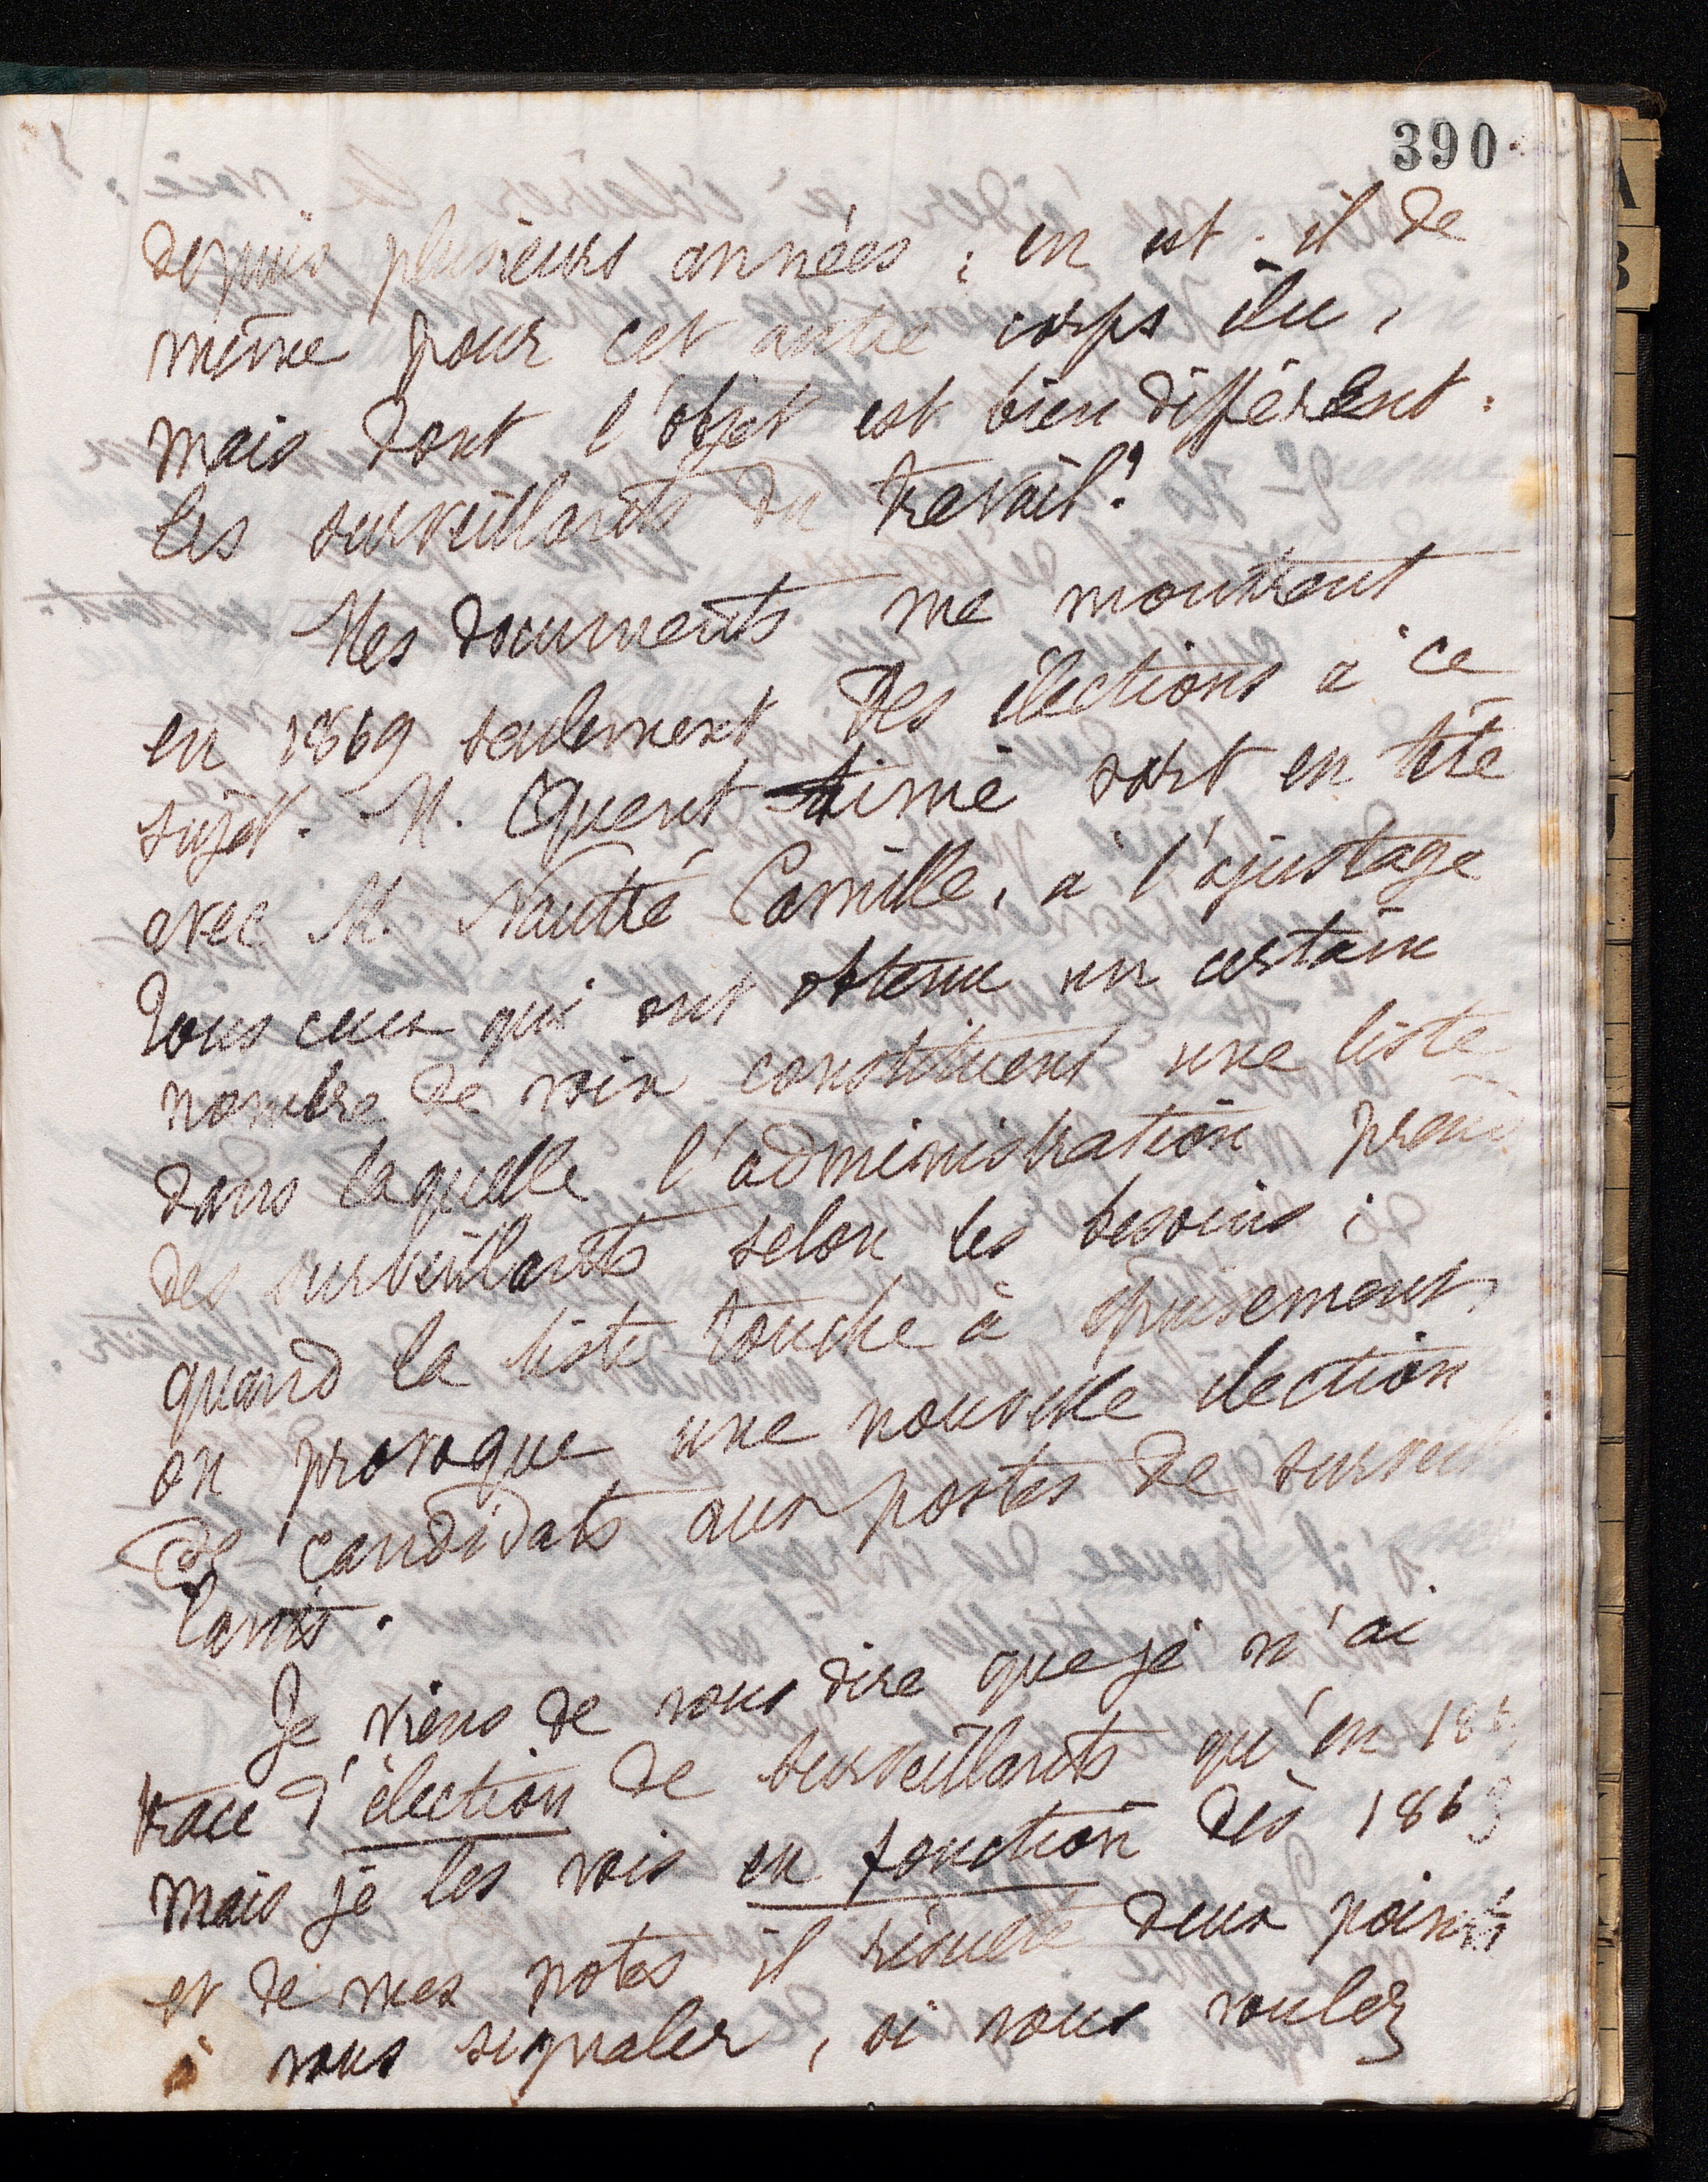 390
depuis plusieurs années ; en est-il de
même pour cet autre corps élu,
mais dont l'objet est bien différent :
les surveillants du travail ?
Mes documents me montrent
en 1869 seulement des élections à ce
sujet. M. Quent aimé sort en tête
avec M. Nautré Camille, à l'ajustage
Tous ceux qui ont obtenu un certain
nombre de voix constituent une liste
dans laquelle l'administration prend
des surveillants selon les besoins ;
quand la liste touche à épuisement,
on provoque une nouvelle élection
de candidats aux postes de surveil
lants.
Je viens de vous dire que je n'ai
trace d'élection de surveillants qu'en 186
mais je les vois en fonction dès 1863
et de mes notes il résulte deux points
à vous signaler, si vous voulez